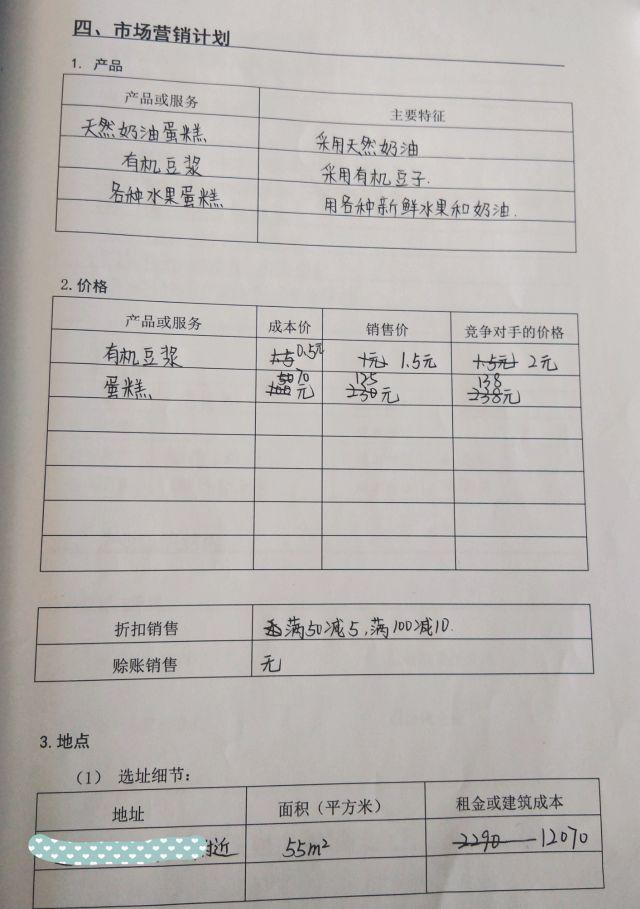 四、市场营销计划
1. 产品
产品或服务 主要特征
天然奶油蛋糕 采用天然奶油
有机豆浆 采用有机豆子.
各种水果蛋糕 用各种新鲜水果和奶油.
2.价格
产品或服务 成本价 销售价 竞争对手的价格
有机豆浆 1.5 0.5元 1元 1.5元 1.5元 2元
蛋糕 70 元 135 230元 138 238元
折扣销售 满50减5,满100减10.
赊账销售 无
3.地点
（1） 选址细节：
地址 面积（平方米） 租金或建筑成本
附近 55m² 2290 12070